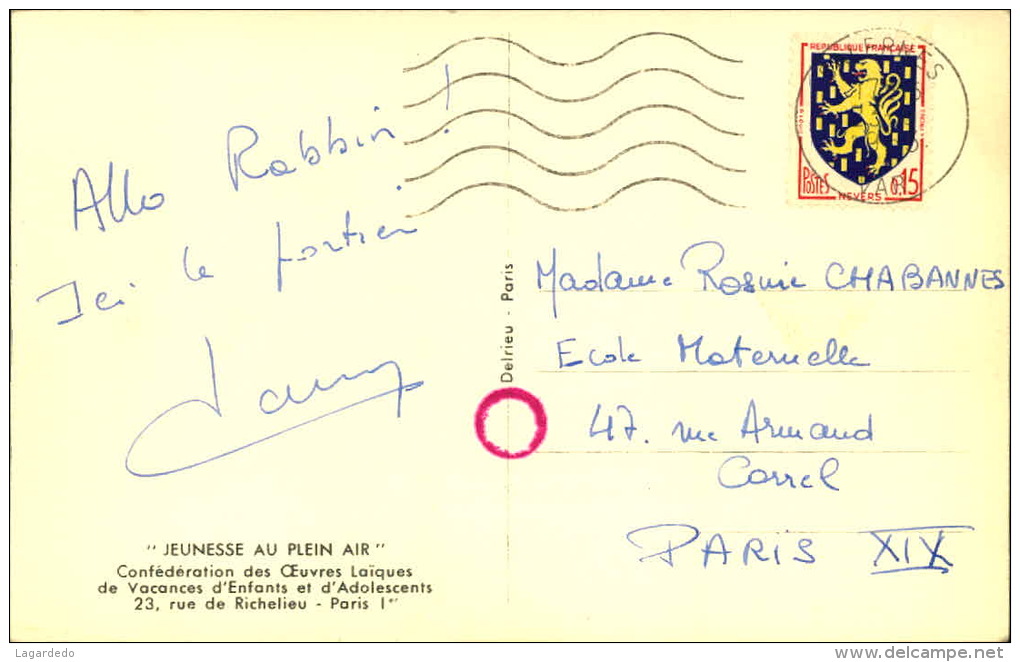 Allo Rabbin !
Ici le portier
"JEUNESSE AU PLEIN AIR"
Confédération des Œuvres Laïques
de Vacances d'Enfants et d'Adolescents
23, rue de Richelieu - Paris 1er
Delrieu - Paris
REPUBLIQUE FRANÇAISE
POSTES 0,15
NEVERS
VAR
Madame Rosine CHABANNES
Ecole Maternelle
47. rue Armand
Carrel
PARIS XIX
Lagardedo
www.delcampe.net